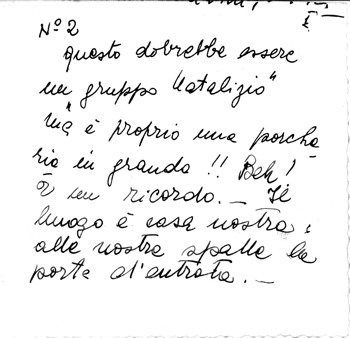 Nº 2
questo dobrebbe essere
un gruppo Natalizio"
ma è proprio una porcha
ria in grande !! Beh!
è un ricordo. _ Il
luogo è casa nostra,
alle nostre spalle la
porta d'entrata. _